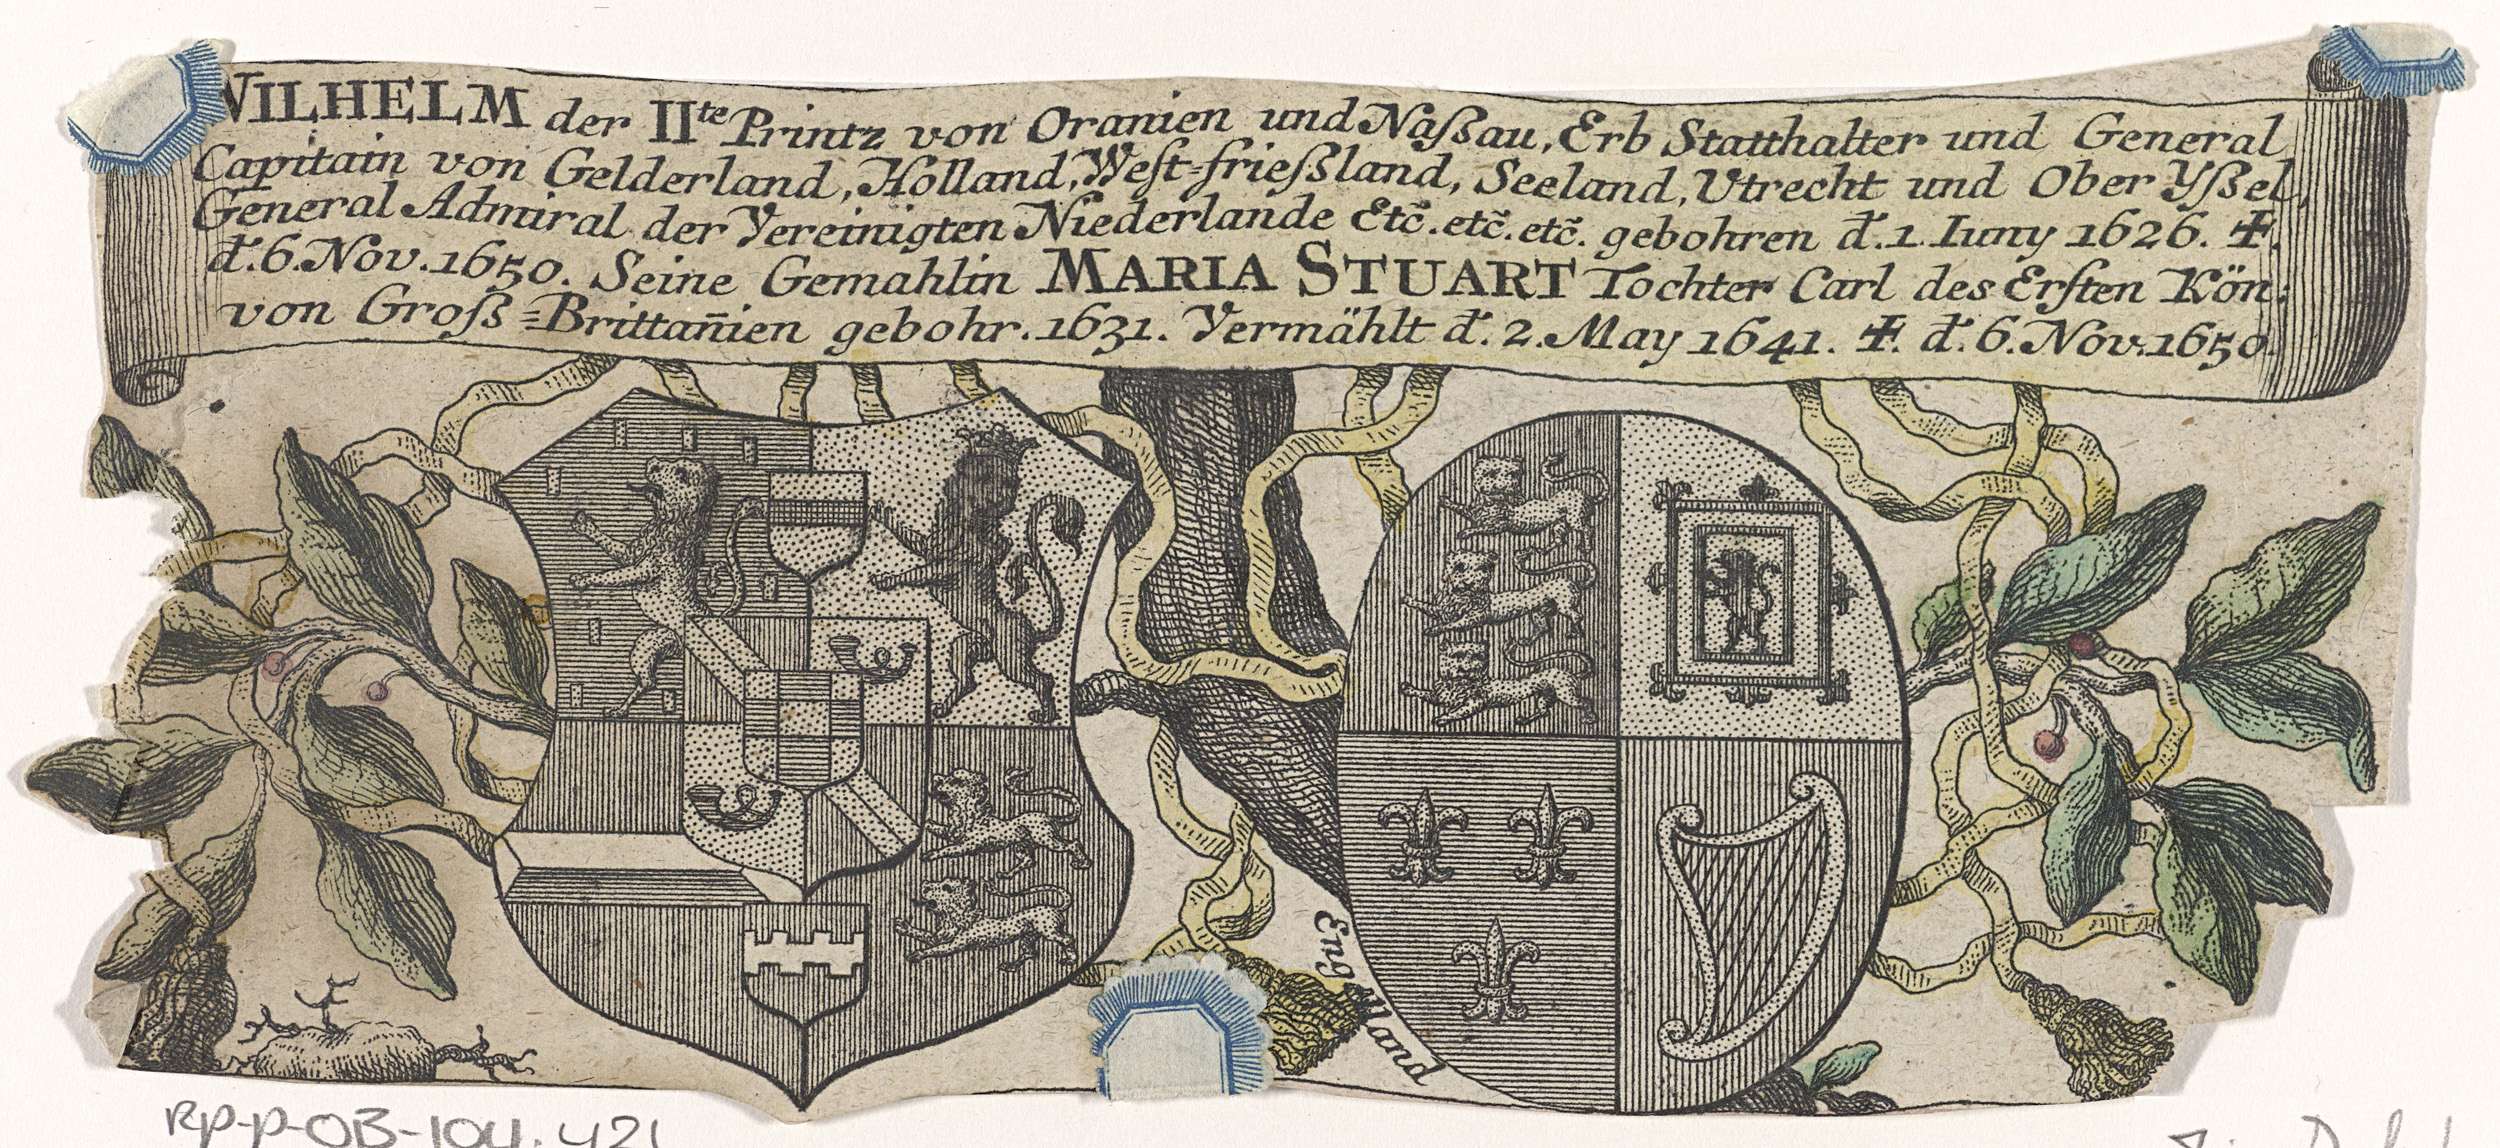 WILHELM der IIte Printz von Oranien und Naßau, Erb Statthalter und General
Capitain von Gelderland, Holland, West=frießland, Seeland, Utrecht und Ober Yßel,
General Admiral der Vereinigten Niederlande Etc̃. etc̃. etc̃. gebohren đ. 1. Iuny 1626. ✠.
đ. 6. Nov. 1650. Seine Gemahlin MARIA STUART Tochter Carl des Ersten Kön:
von Groß=Brittañien gebohr. 1631. Vermählt đ. 2. May 1641. ✠. đ. 6. Nov. 1650.
Engelland
RP-P-OB-104.421